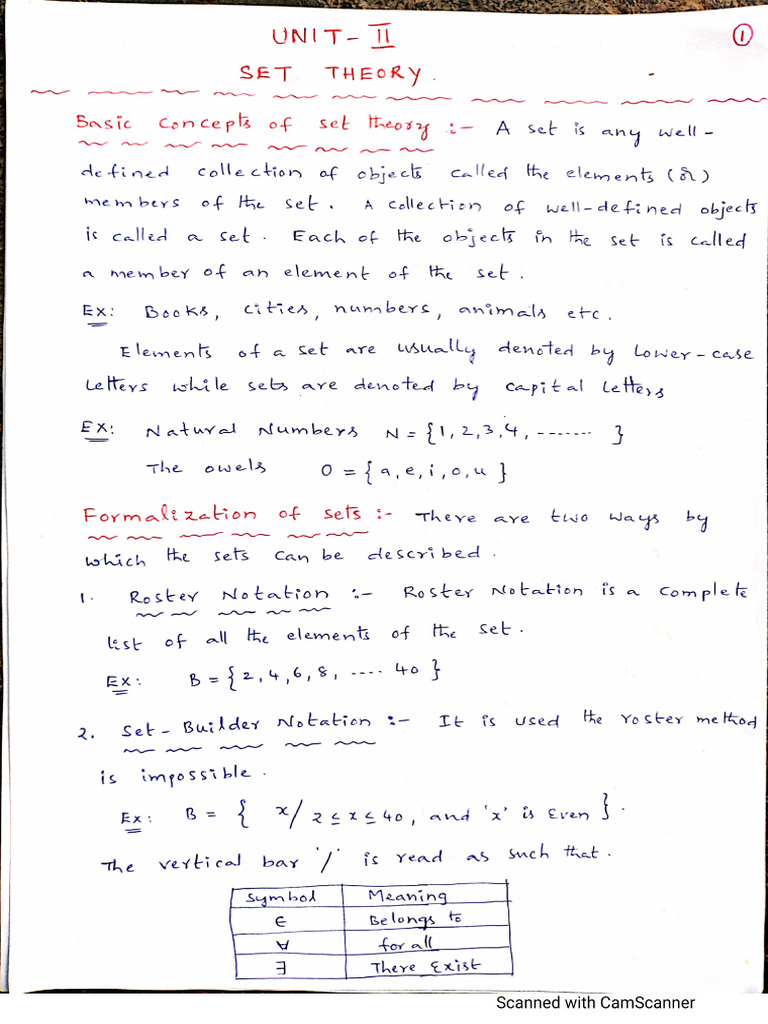 UNIT - II
①
SET THEORY.
Basic Concepts of set theory :- A set is any well-
defined collection of objects called the elements (or)
members of the set. A collection of well-defined objects
is called a set. Each of the objects in the set is called
a member of an element of the set.
Ex: Books, cities, numbers, animals etc.
Elements of a set are usually denoted by lower-case
letters while sets are denoted by capital letters
Ex: Natural Numbers N = {1, 2, 3, 4, ....... }
The owels O = {a, e, i, o, u}
Formalization of sets :- There are two ways by
which the sets can be described.
1. Roster Notation :- Roster Notation is a complete
list of all the elements of the set.
Ex: B = {2, 4, 6, 8, .... 40}
2. Set-Builder Notation :- It is used the roster method
is impossible.
Ex: B = { x/ 2 ≤ x ≤ 40, and 'x' is Even }.
The vertical bar '/' is read as such that.
Symbol Meaning
∈ Belongs to
∀ for all
∃ There Exist
Scanned with CamScanner